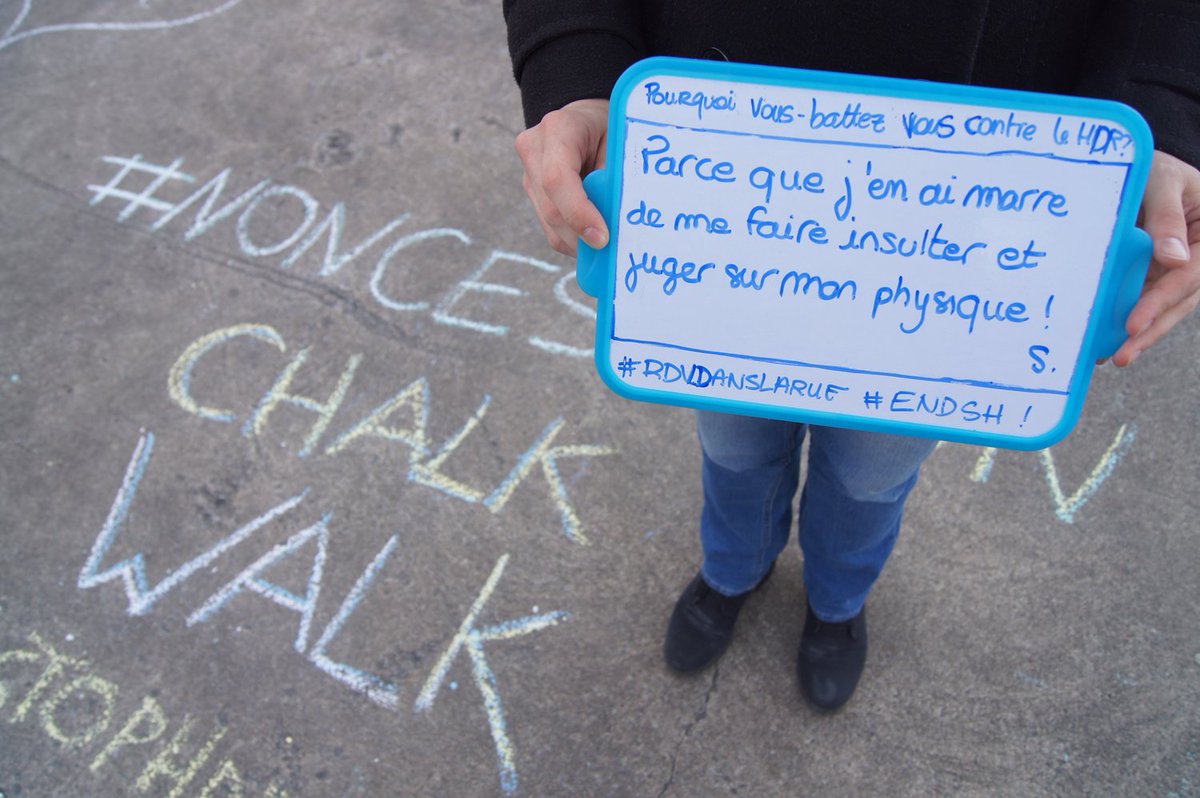 Pourquoi vous-battez vous contre le HDR?
Parce que j'en ai marre
de me faire insulter et
juger sur mon physique !
S.
#RDVDANSLARUE #ENDSH !
#NONCES
CHALK
WALK
STOPHE
N